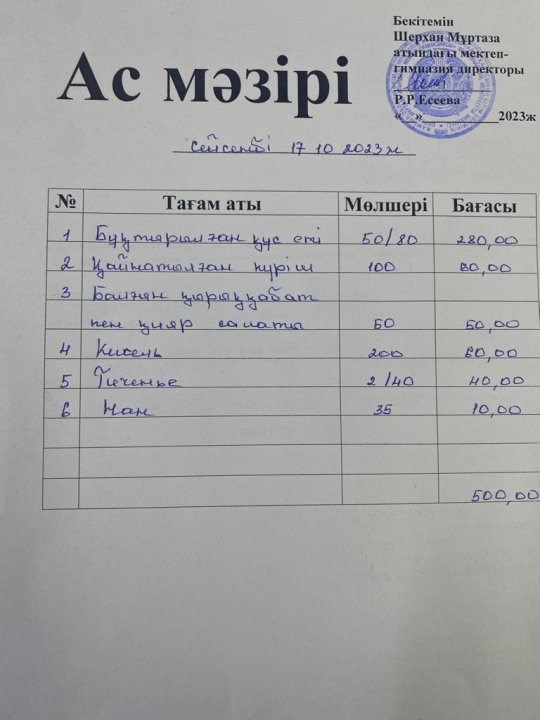 Бекітемін
Шерхан Мұртаза
атындағы мектеп-
гимназия директоры
Р.Р.Есеева
« » 2023ж
Ас мәзірі
Сейсенбі 17 10 2023ж
№ Тағам аты Мөлшері Бағасы
1 Бұқтырылған құс еті 50/80 280,00
2 Қайнатылған күріш 100 60,00
3 Балғын қырыққабат
пен қияр салаты 60 50,00
4 Кисель 200 60,00
5 Печенье 2/40 40,00
6 Нан 35 10,00
500,00